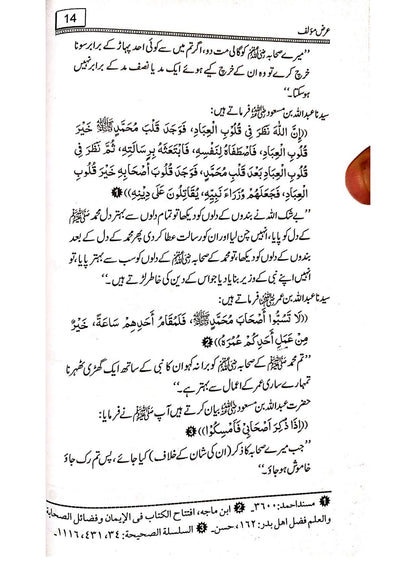 14
عرض مؤلف
”میرے صحابہ رضی اللہ عنہم کو گالی مت دو، اگر تم میں سے کوئی احد پہاڑ کے برابر سونا
خرچ کرے تو وہ ان کے خرچ کیے ہوئے ایک مد یا نصف مد کے برابر نہیں
ہوسکتا۔“
سیدنا عبداللہ بن مسعود رضی اللہ عنہ فرماتے ہیں:
((إِنَّ اللّٰهَ نَظَرَ فِي قُلُوبِ الْعِبَادِ، فَوَجَدَ قَلْبَ مُحَمَّدٍ ﷺ خَيْرَ
قُلُوبِ الْعِبَادِ، فَاصْطَفَاهُ لِنَفْسِهِ، فَابْتَعَثَهُ بِرِسَالَتِهِ، ثُمَّ نَظَرَ فِي
قُلُوبِ الْعِبَادِ بَعْدَ قَلْبِ مُحَمَّدٍ، فَوَجَدَ قُلُوبَ أَصْحَابِهِ خَيْرَ قُلُوبِ
الْعِبَادِ، فَجَعَلَهُمْ وُزَرَاءَ نَبِيِّهِ، يُقَاتِلُونَ عَلَى دِيْنِهِ)) ❶
”بے شک اللہ نے بندوں کے دلوں کو دیکھا تو تمام دلوں سے بہتر دل محمد ﷺ
کے دل کو پایا، انہیں چن لیا اور ان کو رسالت عطا کر دی پھر محمد کے دل کے بعد
بندوں کے دلوں کو دیکھا تو محمد کے صحابہ ﷺ کے دلوں کو سب سے بہتر پایا، تو
انہیں اپنے نبی کے وزیر بنایا دیا جو اس کے دین کی خاطر لڑتے ہیں۔“
سیدنا عبداللہ بن عمر رضی اللہ عنہ فرماتے ہیں:
((لَا تَسُبُّوا أَصْحَابَ مُحَمَّدٍ ﷺ، فَلَمَقَامُ أَحَدِهِمْ سَاعَةً، خَيْرٌ
مِنْ عَمَلِ أَحَدِكُمْ عُمُرَهُ)) ❷
”تم محمد ﷺ کے صحابہ کو برا نہ کہو ان کا نبی کے ساتھ ایک گھڑی ٹھہرنا
تمہارے ساری عمر کے اعمال سے بہتر ہے۔“
حضرت عبداللہ بن مسعود بیان کرتے ہیں آپ ﷺ نے فرمایا:
((إِذَا ذُكِرَ أَصْحَابِي فَأَمْسِكُوا)) ❸
”جب میرے صحابہ کا ذکر (ان کی شان کے خلاف) کیا جائے، پس تم رک جاؤ
خاموش ہو جاؤ۔“
❶ مسند احمد: ۳۶۰۰۔ ❷ ابن ماجه، افتتاح الكتاب فى الإيمان وفضائل الصحابة
والعلم فضل اهل بدر: ۱۶۲، حسن۔ ❸ السلسلة الصحيحة: ۳۴، ۴۳۱، ۱۱۱۶۔